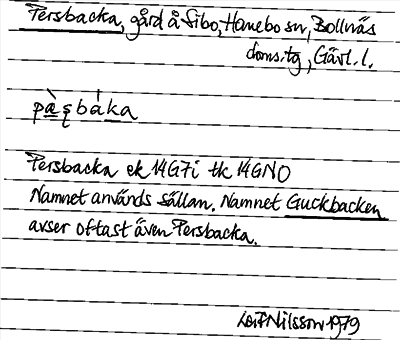 Persbacka, gård å Sibo, Hanebo sn, Bollnäs
doms.tg, Gävl. l.
pàʂbáka
Persbacka ek 14G7i tk 14GNO
Namnet används sällan. Namnet Guckbacken
avser oftast även Persbacka.
Leif Nilsson 1979